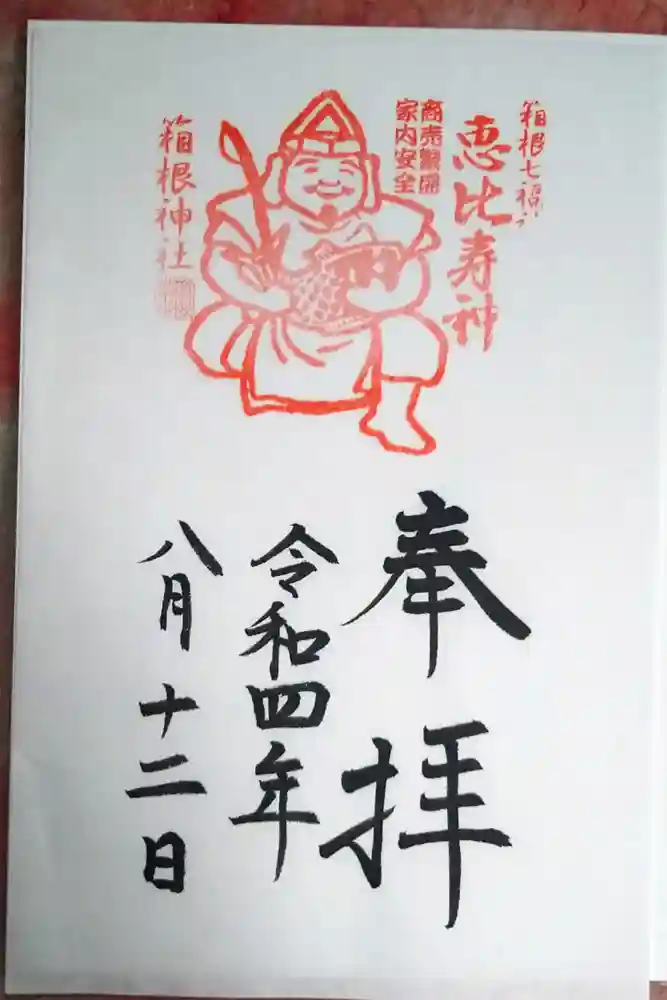 箱根七福
恵比寿神
商売繁昌
家内安全
箱根神社
奉拝
令和四年
八月十二日